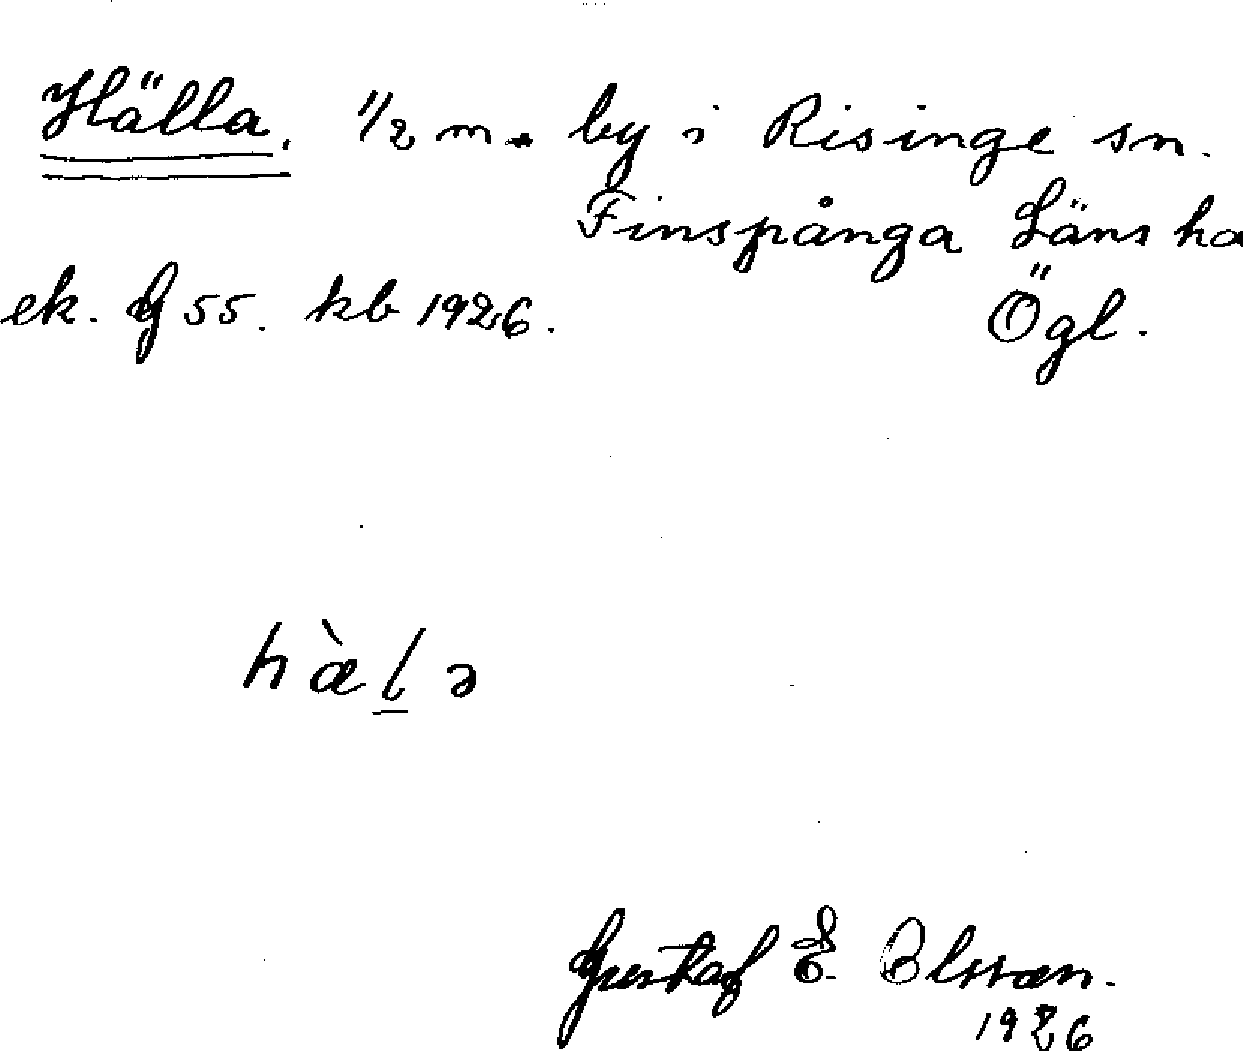 Hälla. 1/2 m. by i Risinge sn.
Finspånga Läns ha
ek. G 55. kb 1926. Ögl.
hàlə
Gustaf E. Olsson.
1926